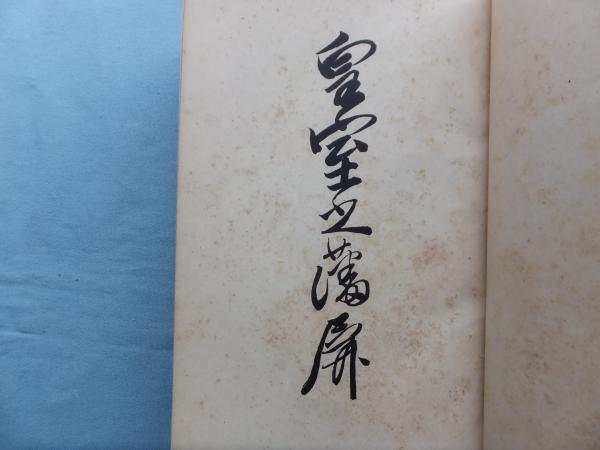 皇室之藩屏